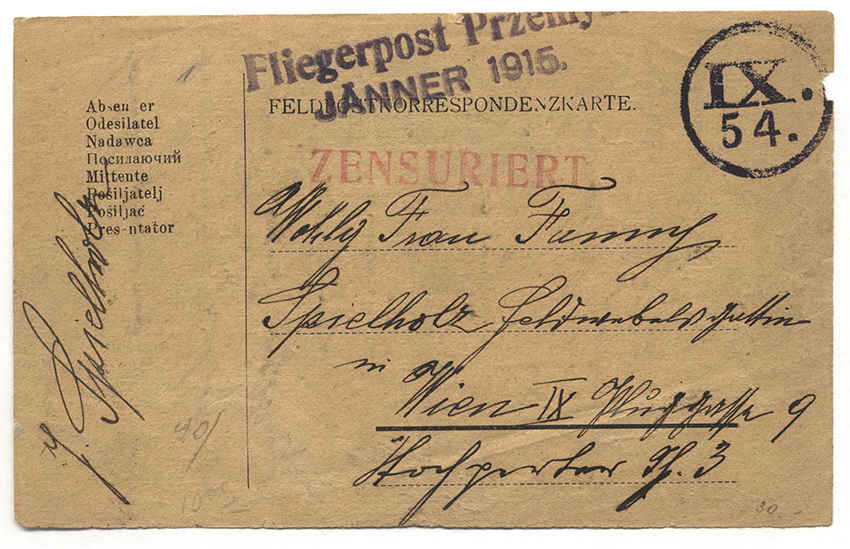 Fliegerpost Przemyś
JÄNNER 1915.
FELDPOSTKORRESPONDENZKARTE.
ZENSURIERT.
IX.
54.
Absen er
Odesilatel
Nadawca
Посилаючий
Mittente
Pošiljatelj
Pošiljać
Pres-ntator
J. Spielholz
Wohlg Frau Fanny
Spielholz Feldwebelsgattin
in
Wien IX 9
Hochparter Th. 3
40/
30 -